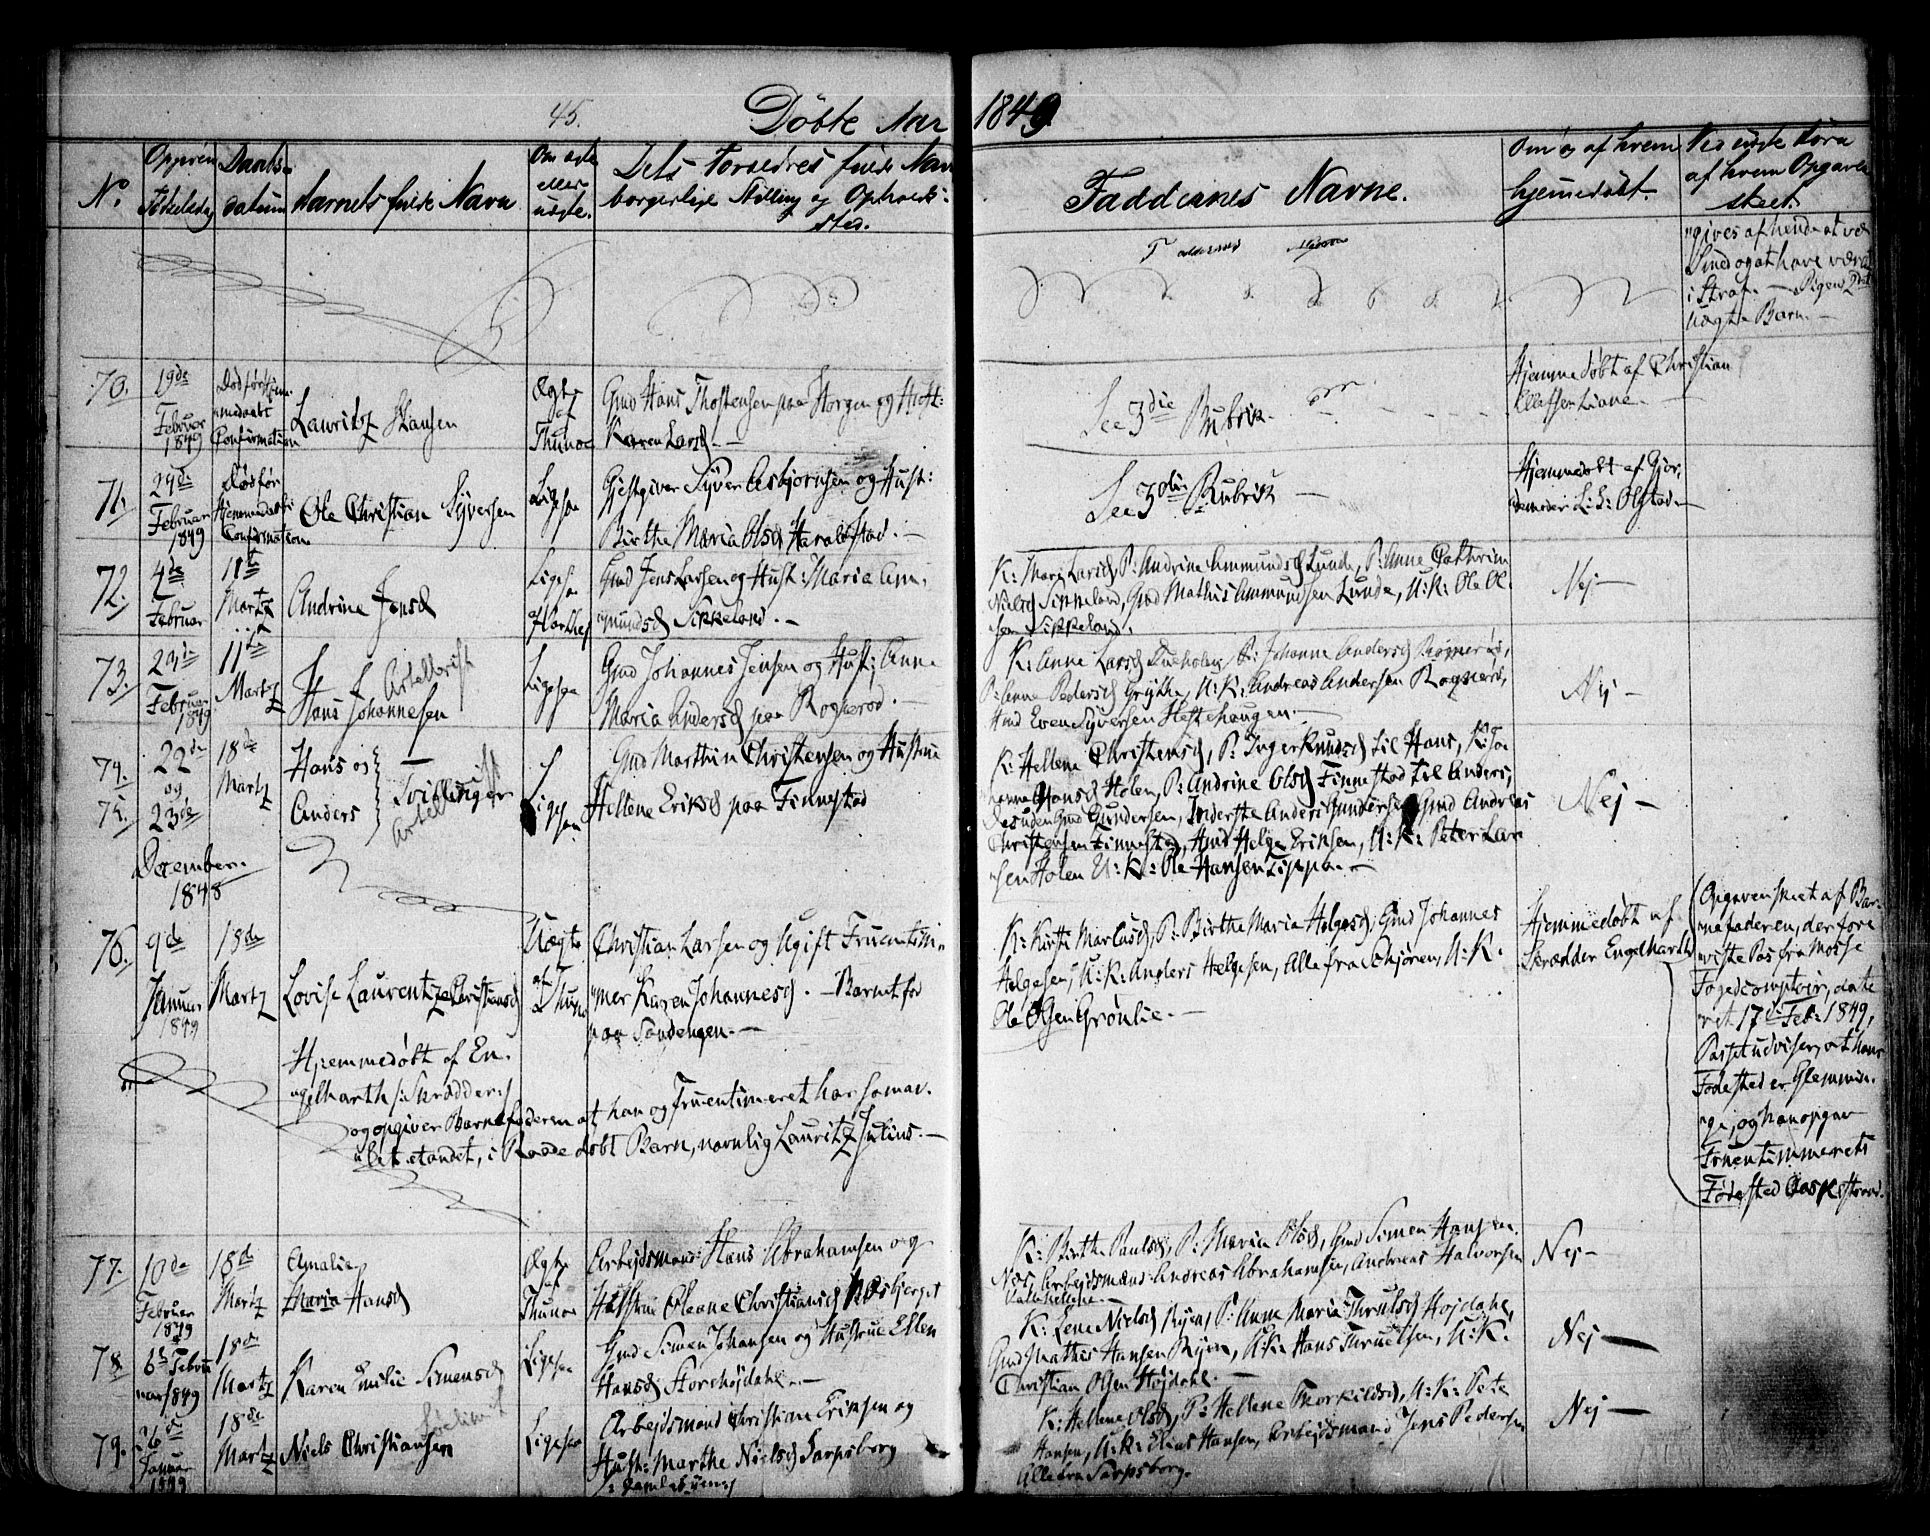 45. Døbte Aar 1849.
No
Opgiven Fødselsdag
Daabs-
datum
Barnets fulde Navn
Om ægte
eller
uægte.
Dets Forældres fulde Navn
borgerlige Stilling og Opholds-
sted.
Faddernes Navne.
Om og af hvem
hjemmedøbt.
Ved uægte Børn
af hvem Opgaven
skeet.
Faddernes Navne
"gives af hende at være
Smed og at have været
i Straf. — Pigens 2det
uægte Barn. —
70.
19de
Februar
1849
Død før Hjem-
medaabs
Confirmation
Lauritz Hansen
Ægte
af
Thunøe
Gmd Hans Thostensen paa Horgen og Hust:
Karen Larsd. —
See 3die Rubrik.
Hjemmedøbt af Christian
Ellefsen Liane. —
71.
24de
Februar
1849
Død før
Hjemmedaabs
Confirmation
Ole Christian Syversen
Ligesaa
Gjestgiver Syver Asbjørnsen og Hust:
Birthe Maria Olsd Haralstad. —
See 3die Rubrik —
Hjemmedøbt af Gjor-
demoder L: L: Olstad —
72.
4de
Februar
11te
Martz
Andrine Jensd
Ligesaa
Gmd Jens Larsen og Hust: Maria Am-
mundsd Sikkeland. —
K: Mari Larsd, P: Andrine Ammundsd Lunde, P: Anne Cathrine
Nielsd Sikkeland, Gmd Mathis Ammundsen Lunde, U: K: Ole Ol-
sen Sikkeland.
Nej —
73.
23de
Februar
1849
11te
Martz
Hans Johannesen
Ligesaa
Gmd Johannes Jensen og Hust: Anne
Maria Andersd paa Rognerød. —
K: Anne Larsd Dueholen, P: Johanne Andersd Rømerød,
P: Anne Pedersd Grythe, U: K: Andreas Andersen Rognerød,
Hmd Even Syversen Hestehaugen —
Nej —
74.
og
75.
22de
og
23de
18de
Martz
Hans og
Anders
Tvillinger
Ligesaa
Gmd Marthin Christensen og Hustrue
Hellene Eriksd paa Finnestad
K: Hellene Christensd, P: Inger Knudsd til Hans, K: Jo-
hanne Hansd Holen, P: Andrine Olsd Finnestad til Anders,
Desuden Gmd Gundersen, Inderste Anders Gundersen, Gmd Andreas
Christensen Finnestad, Hmd Helge Eriksen, U: K: Peter Lar-
sen Holen U: K: Ole Hansen Tippen. —
Nej —
December
1848
76.
9de
Januar
1849
18de
Martz
Lovise Laurentze Christiansd
Uægte
af
Thunø
Christian Larsen og Ugift Fruentim-
mer Karen Johannesd. — Barnet fød
paa Sandengen. —
K: Kirsti Mariusd, P: Birthe Maria Helgesd, Gmd Johannes
Helgesen, U: K: Anders Helgesen, Alle fra Schjøren, U: K.
Ole Olsen Grønlie. —
Hjemmedøbt af
Skrædder Engelharth
Opgaven skeet af Bar-
nefaderen, der fore-
viste Pas fra Mosse
Fogedcomptoir, date-
ret 17de Feb: 1849,
Passet udviser, at hans
Fødested er Glemmin-
ge, og han opgav
Fruentimmerets
Fødested Onsk strand.
Hjemmedøbt af En-
gelharth /: Skrædder :/
og opgiver Barnefaderen at han og Fruentimeret har som av-
let standet, i Raade døbt Barn, navnlig Lauritz Julius. —
77.
10de
Februar
1849
18de
Martz
Amalie
Maria Hansd
Ægte
af
Thunøe
Arbejdsmand Hans Abrahamsen og
Hustrue Oleane Christiansd Næsbjerget
K: Birthe Paulsd, P: Maria Olsd, Gmd Simen Hansen
Næs, Arbejdsmand Andreas Abrahamsen, Andreas Halvorsen
Nej —
78
6te Febru-
ar 1849
18de
Martz
Karen Emilie Simensd
Ligesaa
Gmd Simen Johansen og Hustrue Ellen
Hansd Storehøjdahl. —
K: Lene Nielsd Ryen, P: Anne Maria Thrulsd Højdahl,
Gmd Mathis Hansen Ryen, U: K: Hans Thruelsen, U: K.
Christian Olsen Højdahl. —
Nej —
79.
26de
Januar
1849
18de
Martz
Niels Christiansen
Ligesaa
Arbejdsmand Christian Erimsen og
Hust: Marthe Nielsd Sarpsborg
K: Hellene Olsd, P: Hellene Thorkildsd, U: K: Peter
Hansen, U: K: Elias Hansen, Arbejdsmand Jens Pedersen
Alle fra Sarpsborg.
Nej —